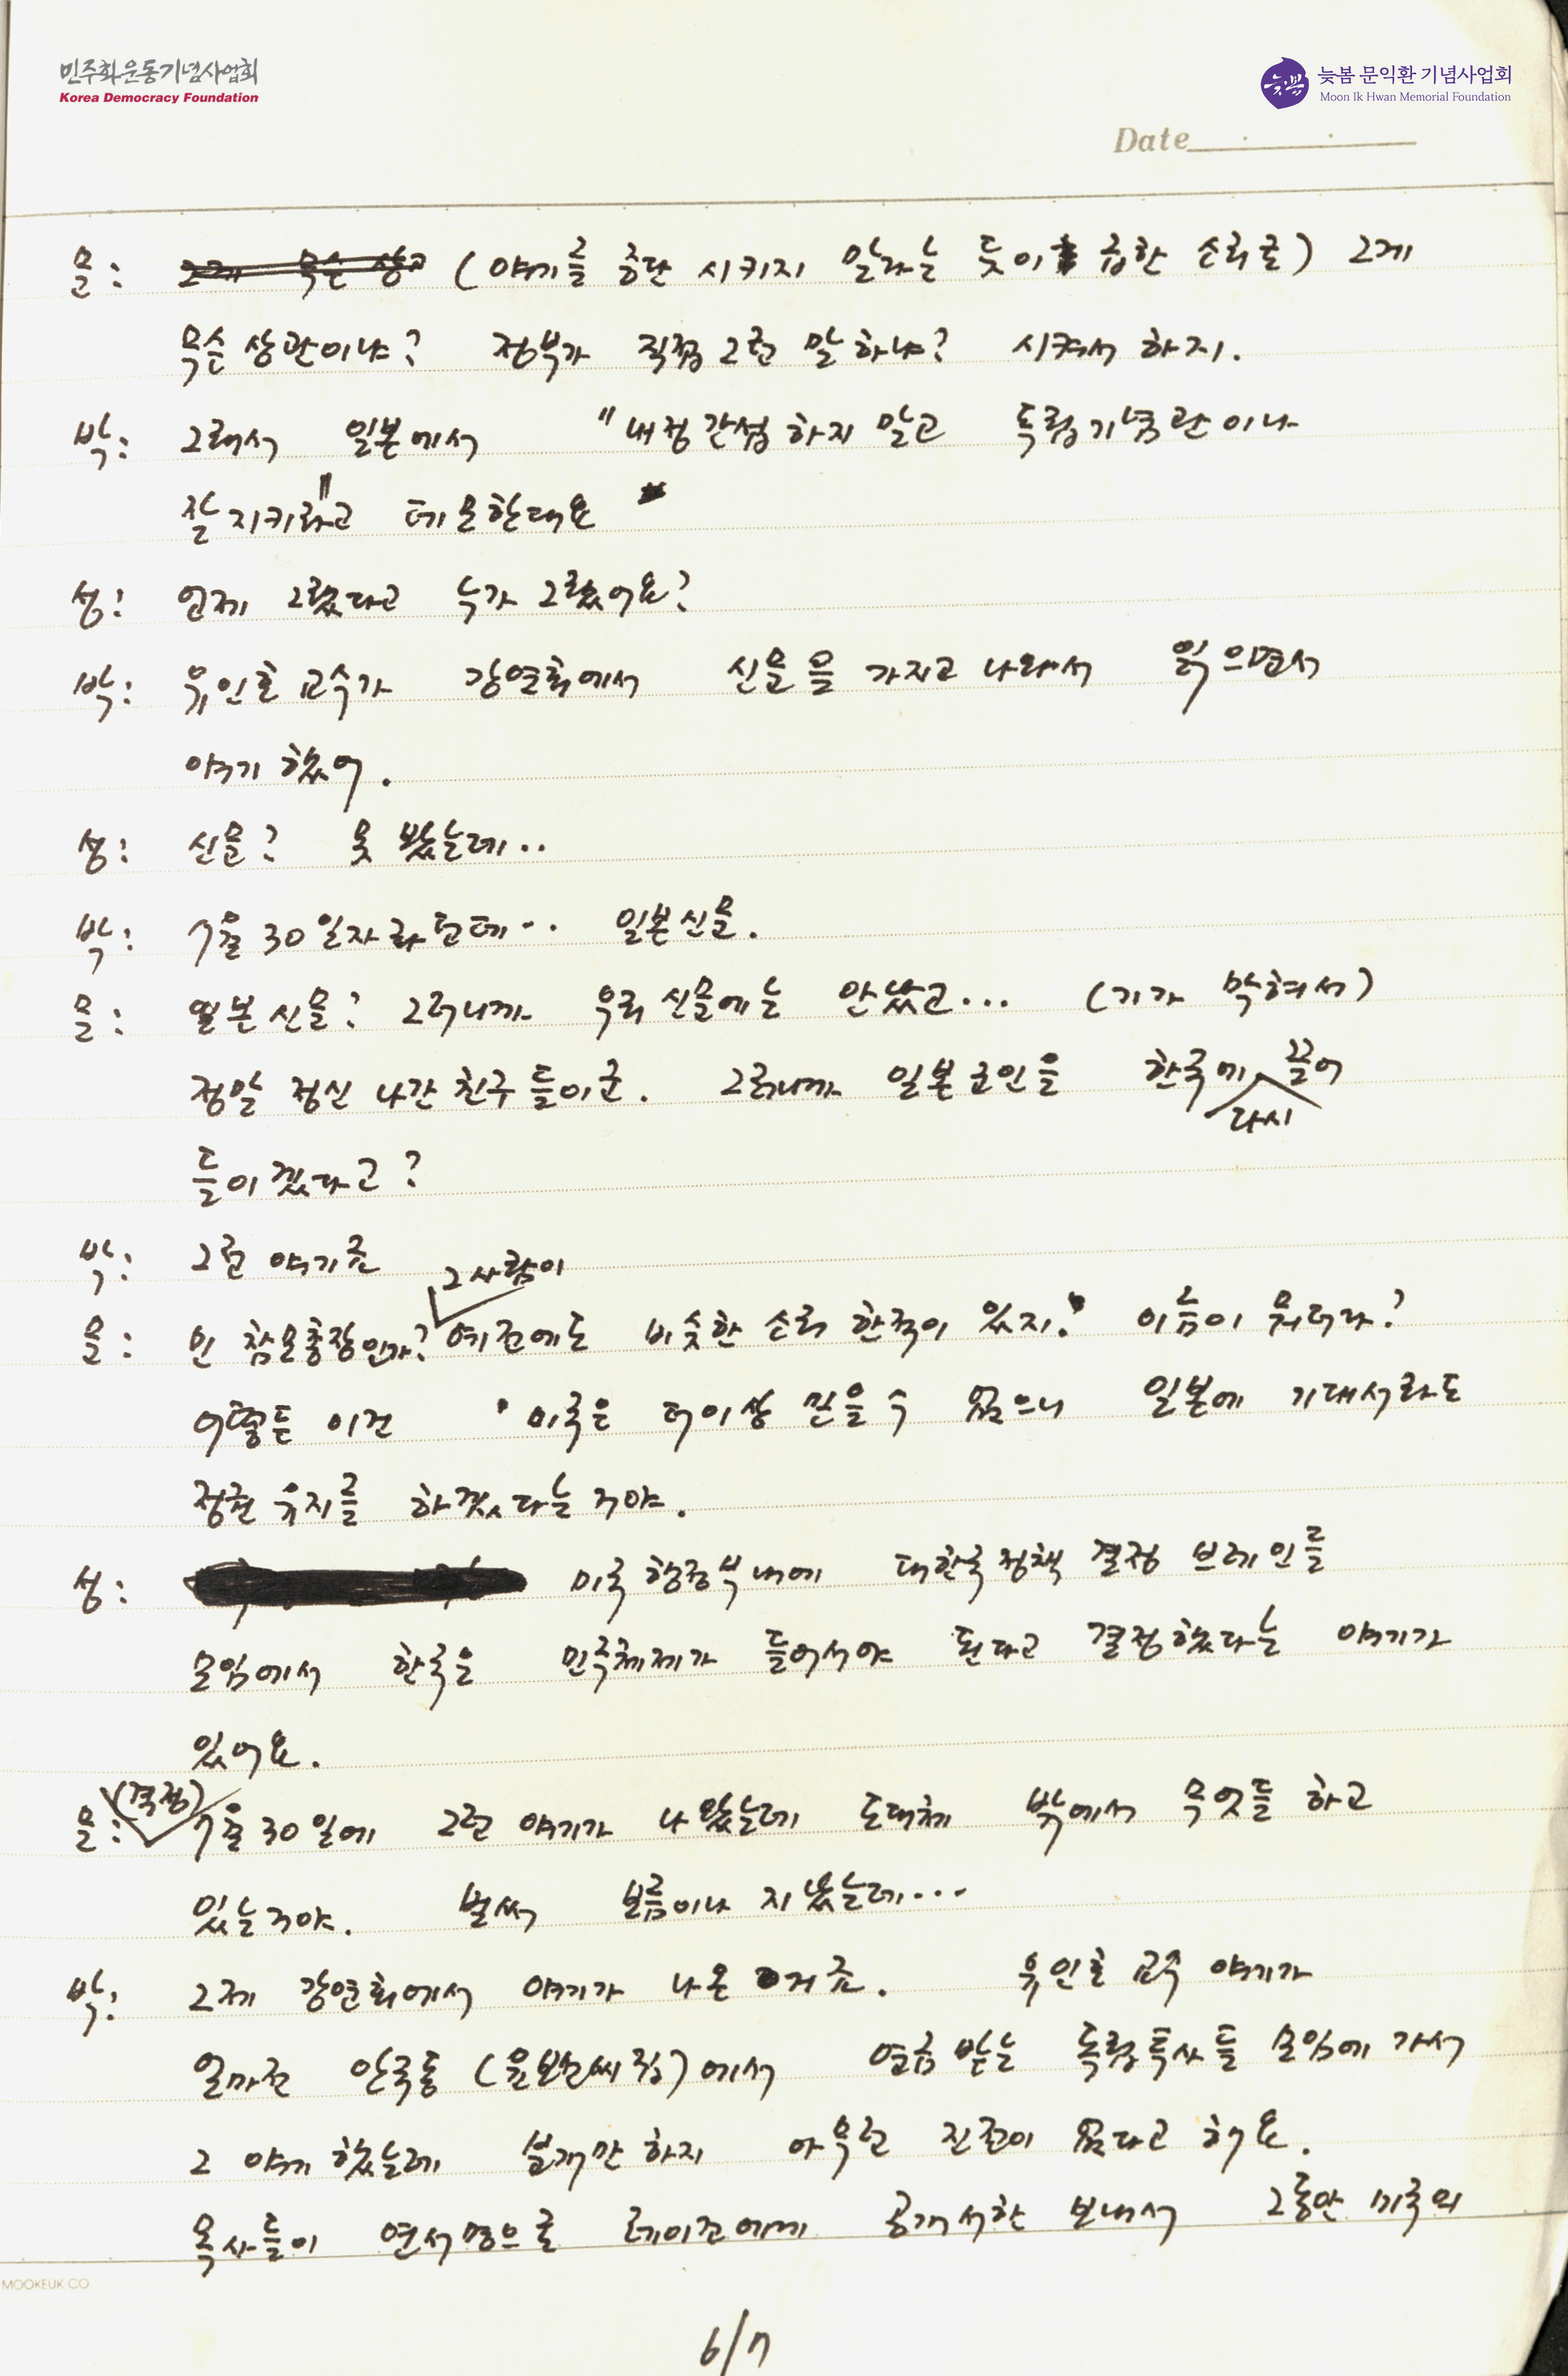 민주화운동기념사업회
Korea Democracy Foundation
늦봄 문익환 기념사업회
Moon Ik Hwan Memorial Foundation
늦봄
Date
문: 그게 무슨 상고 (얘기를 중단 시키지 말라는 듯이 급한 소리로) 그게
무슨 상관이냐? 정부가 직접 그런 말 하냐? 시켜서 하지.
박: 그래서 일본에서 "내정간섭 하지 말고 독립기념관이나
잘 지키라"고 데모한대요
성: 언제 그랬다고 누가 그랬어요?
박: 유인호 교수가 강연회에서 신문을 가지고 나와서 읽으면서
얘기 했어.
성: 신문? 못 봤는데..
박: 7월 30일자라던데.. 일본신문.
문: 일본신문? 그러니까 우리 신문에는 안났고... (기가 막혀서)
정말 정신 나간 친구들이군. 그러니까 일본군인을 한국에 다시 끌어
들이겠다고?
박: 그런 얘기죠
문: 민 참모총장인가? 그 사람이 예전에도 비슷한 소리 한적이 있지. 이름이 뭐더라?
어떻든 이건 미국은 더이상 믿을 수 없으니 일본에 기대서라도
정권 유지를 하겠다는 거야.
성: 미국 행정부내에 대한국정책 결정 브레인들
모임에서 한국은 민주체제가 들어서야 된다고 결정했다는 얘기가
있어요.
문: (걱정) 7월 30일에 그런 얘기가 나왔는데 도대체 밖에서 무엇들 하고
있는거야. 벌써 보름이나 지났는데...
박: 그제 강연회에서 얘기가 나온 거죠. 유인호 교수 얘기가
얼마전 안국동 (윤보선씨 집)에서 연금 받는 독립투사들 모임에 가서
그 얘기 했는데 분개만 하지 아무런 진전이 없다고 해요.
목사들이 연서명으로 레이건에게 공개서한 보내서 그동안 미국의
MOOKEUK CO
6/7